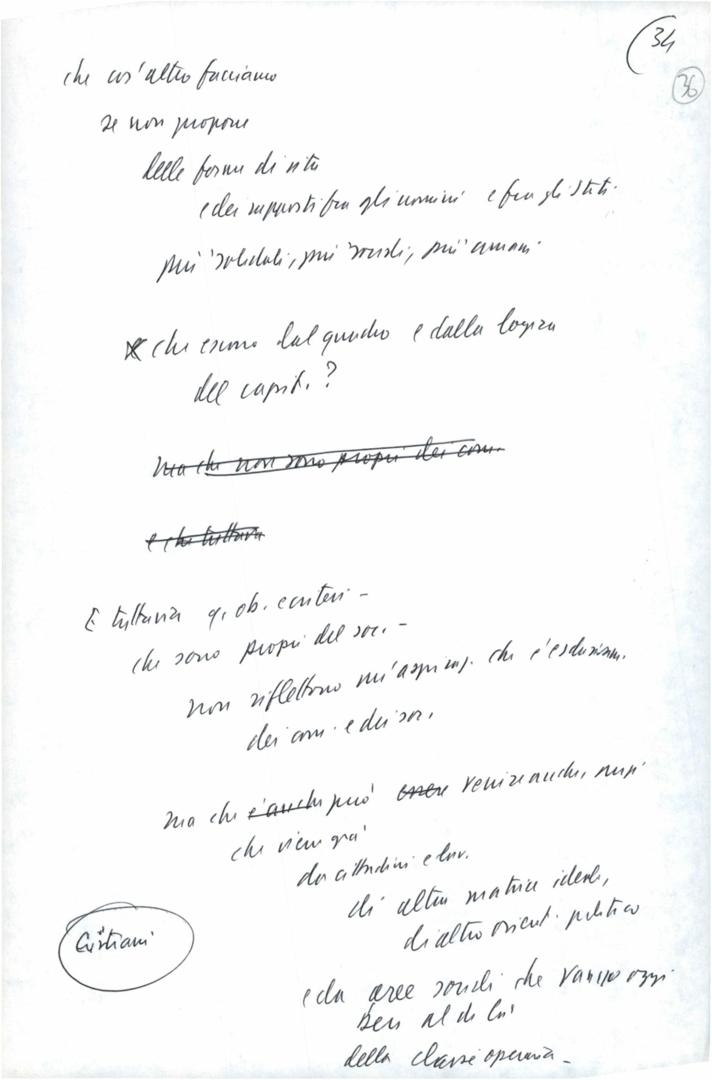 34
36
che cos'altro facciamo
se non proporre
delle forme di vita
e dei rapporti fra gli uomini e fra gli Stati
più solidali, più sociali, più umani
che escono dal quadro e dalla logica
del capit. ?
ma che non sono propri dei com.
e che tuttavia
E tuttavia q. ob. e criteri –
che sono propri del soc. –
non riflettono un'aspiraz. che è
dei com. e dei soc.
ma che è anche può essere venire anche, anzi
che viene già
da cittadini e lav.
di altra matrice ideale,
di altro orient. politico
Cristiani
e da aree sociali che vanno oggi
ben al di là
della classe operaia –